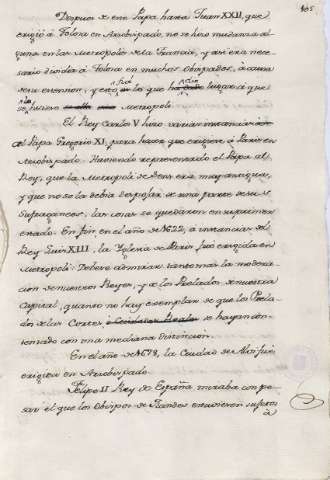 105
Despues de este Papa hasta Juan XXII, que
erigió a Tolosa en Arzobispado, no se hizo mudanza al-
guna en las Metropolis de la Francia, y asi era nece-
sario dividir a Tolosa en muchos obispados, á causa
de su extension, y esto fué lo que dió lugar á que
se hiciese Metropoli.
El Rey Carlos V hizo varias instancias
al Papa Gregorio XI, para que erigiese á Paris en
Arzobispado. Haviendo representado el Papa al
Rey, que la Metropoli de Sens era muy antigua,
y que no se la debia despojar de una parte de sus
Sufraganeos, las cosas se quedaron en su primer
estado. En fin, en el año de 1622, a instancias del
Rey Luis XIII, la Yglesia de Paris fué erigida en
Metropoli. Debese admirar tanto mas la modera-
cion de nuestros Reyes, y de los Prelados de nuestra
Capital, quanto no hay exemplar de que los Prela-
dos de las Cortes se hayan con-
tentado con una mediana distincion.
En el año de 1678, la Ciudad de Albi fué
erigida en Arzobispado.
Felipe II Rey de España miraba con pe-
sar el que los Obispos de Flandes estuviesen sujetos
á